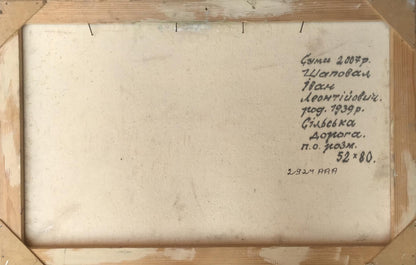 Суми 2007р.
Шаповал
Іван
Леонтійович.
род. 1939р.
Сільська
дорога.
п.о. розм.
52×80.
2924 ААА